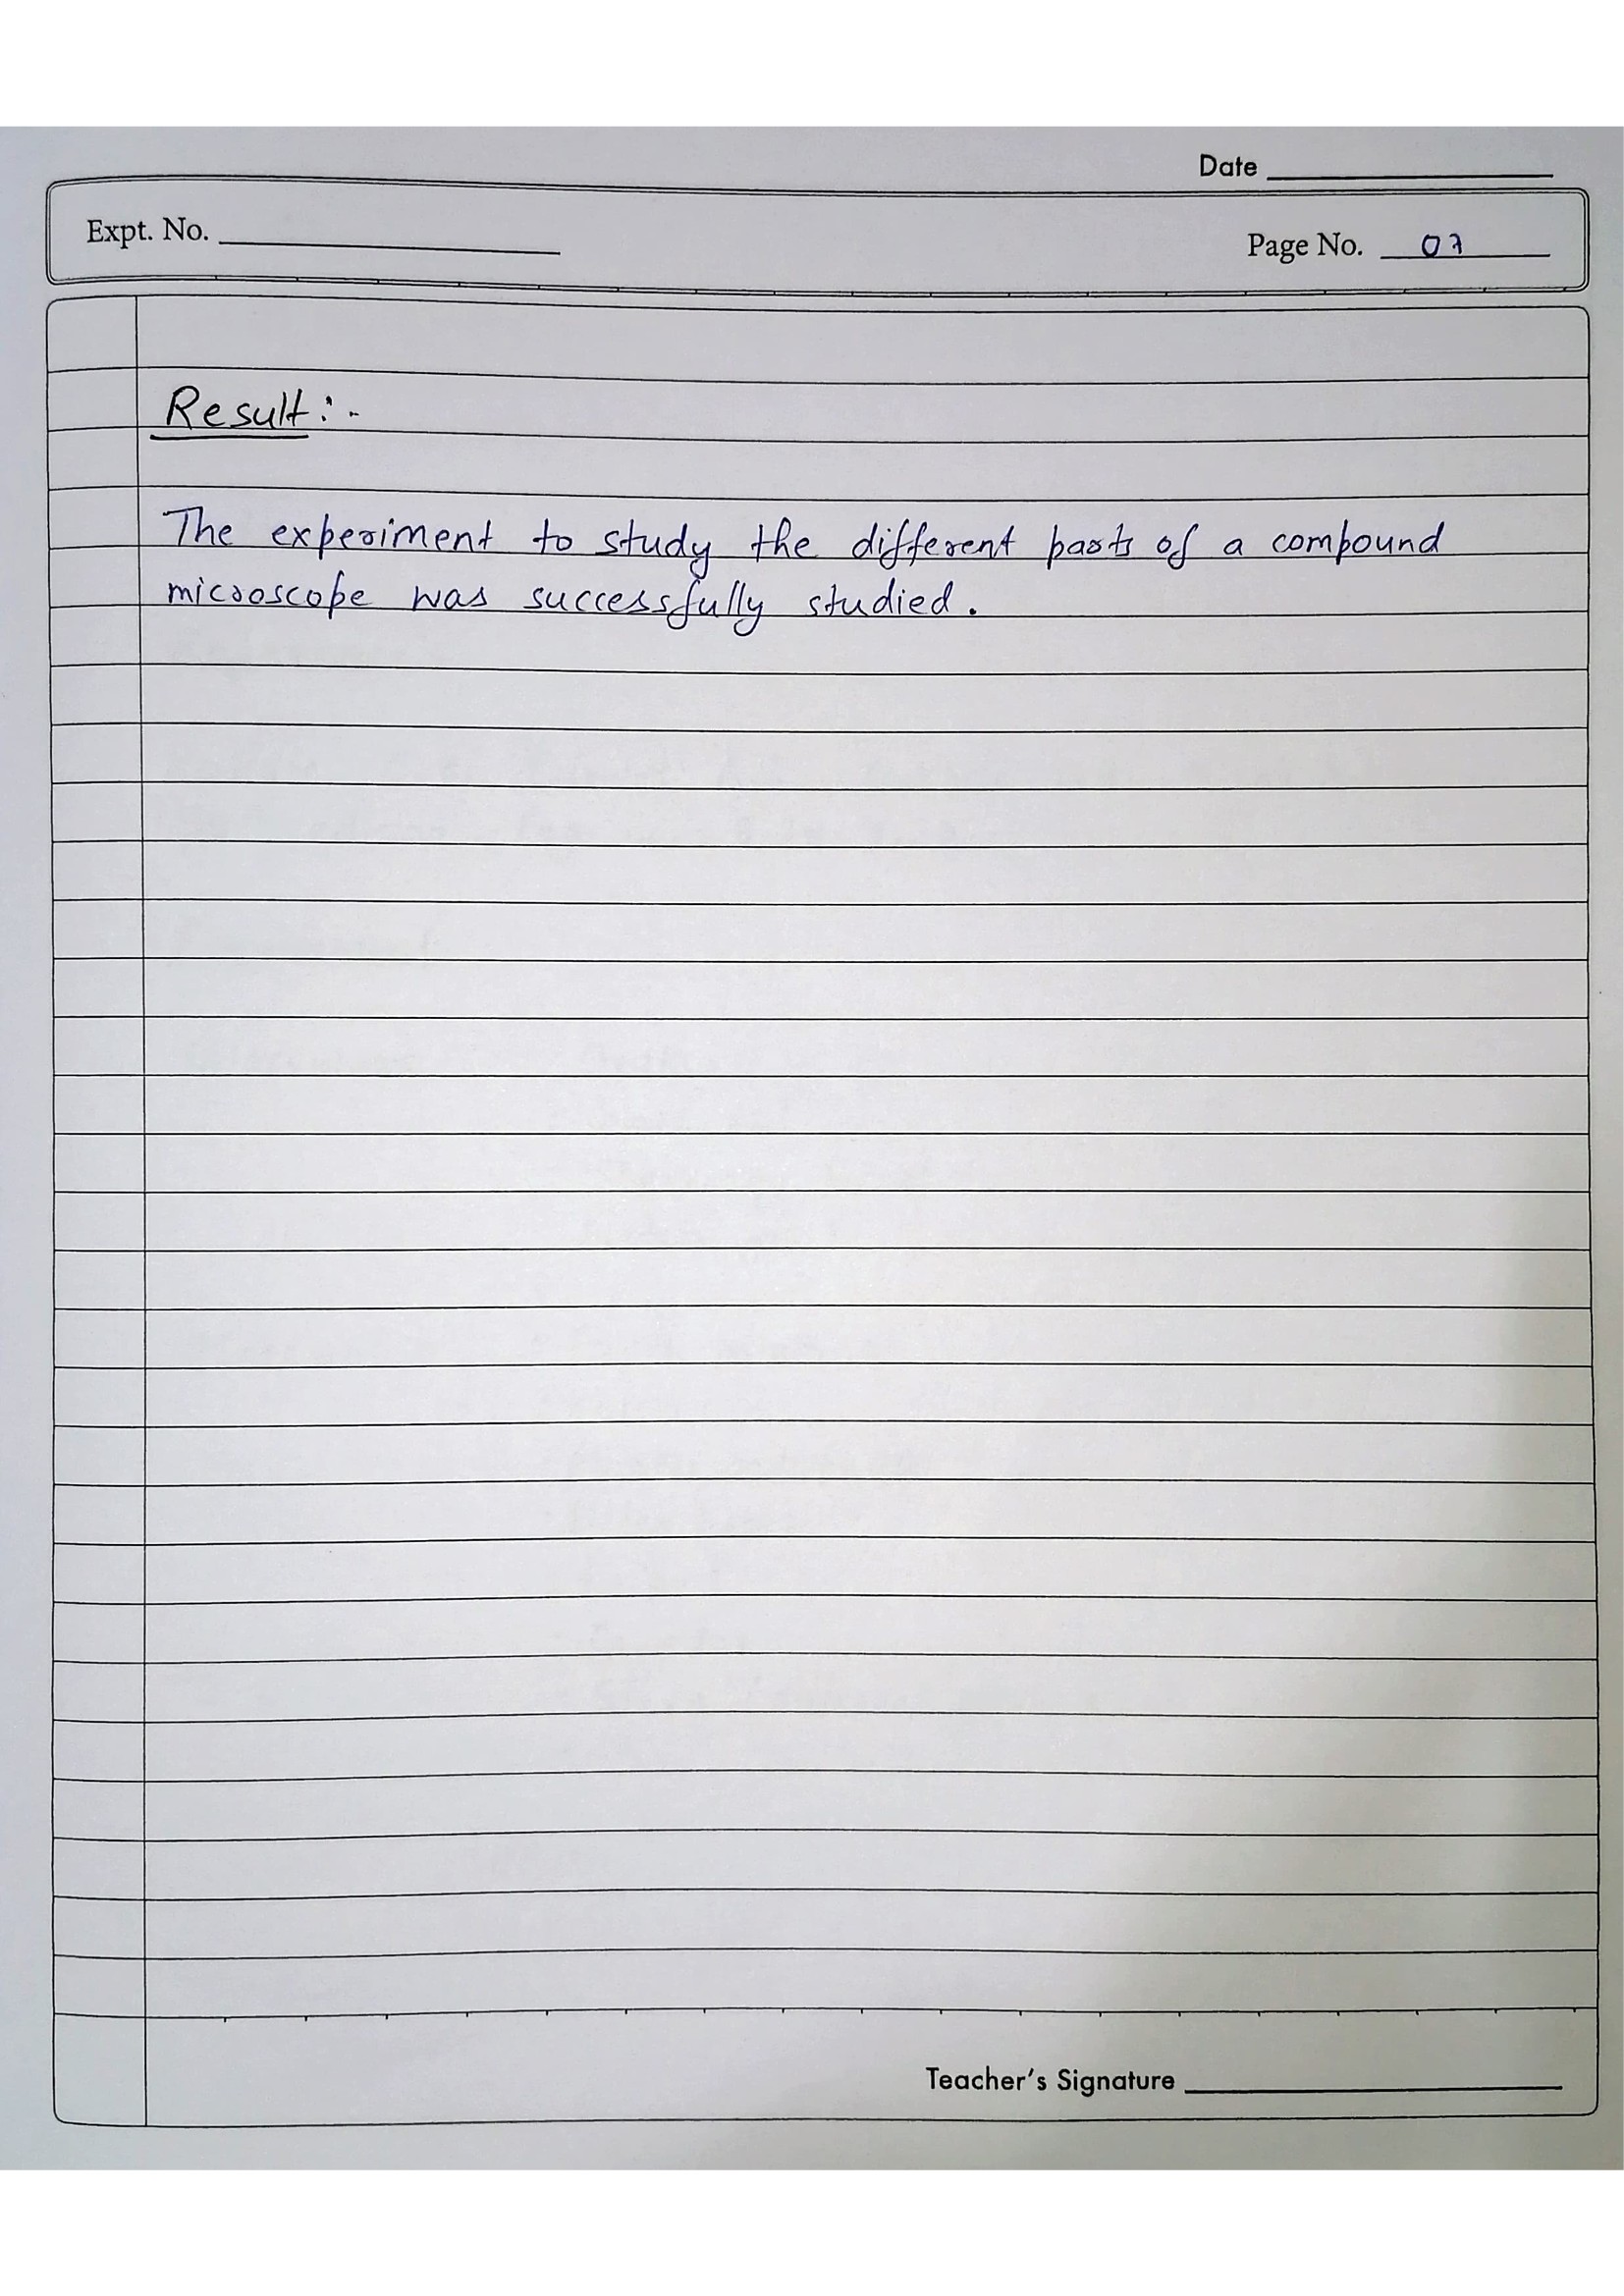 Date
Expt. No.
Page No. 07
Result:-
The experiment to study the different parts of a compound
microscope was successfully studied.
Teacher's Signature